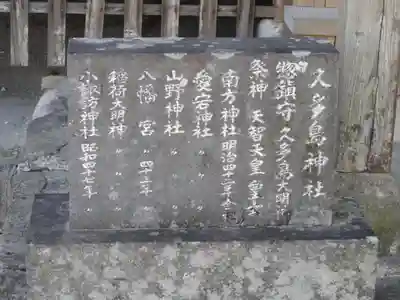 久多島神社
惣鎮守 久多島大明神
祭神 天智天皇
南方神社 明治四十三年合祀
愛宕神社 〃 〃
山野神社 〃 〃
八幡宮 四十三年 〃
稲荷大明神 〃 〃
小諏訪神社 昭和四十七年 〃